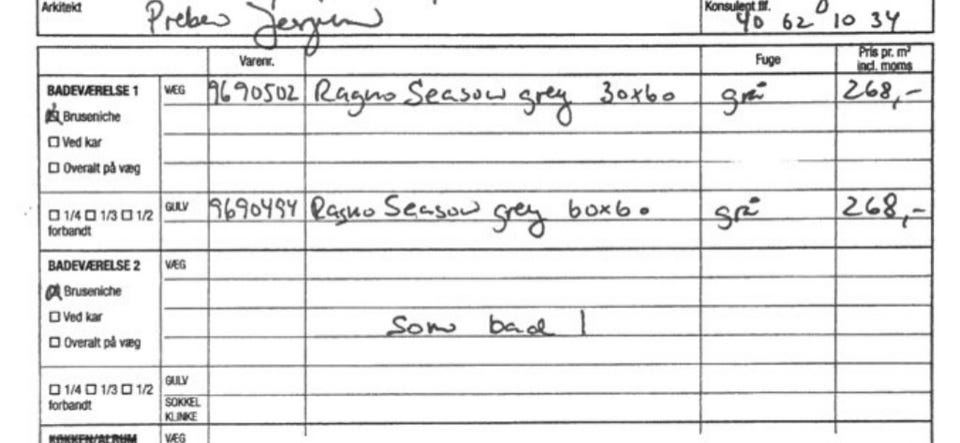 Arkitekt Preben Jørgensen Konsulent tlf. 40 62 10 34
Varenr. Fuge Pris pr. m² incl. moms
BADEVÆRELSE 1 VÆG 9690502 Ragno Seasow grey 30x60 grå 268,-
Bruseniche
Ved kar
Overalt på væg
1/4 1/3 1/2 forbandt GULV 9690494 Ragno Seasow grey 60x60 grå 268,-
BADEVÆRELSE 2 VÆG
Bruseniche
Ved kar Som bad 1
Overalt på væg
1/4 1/3 1/2 forbandt GULV
SOKKEL KLINKE
KØKKEN/ALRUM VÆG